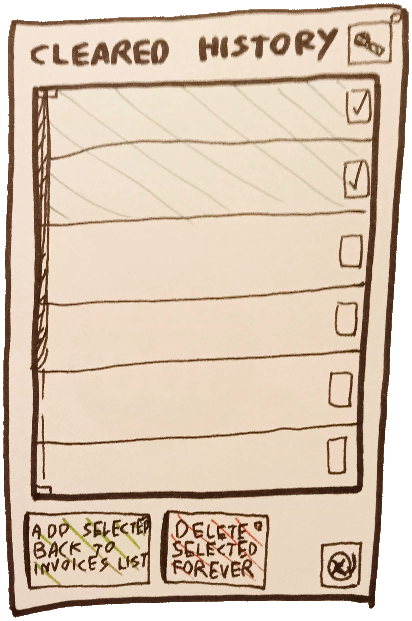 CLEARED HISTORY
ADD SELECTED
BACK TO
INVOICES LIST
DELETE
SELECTED
FOREVER